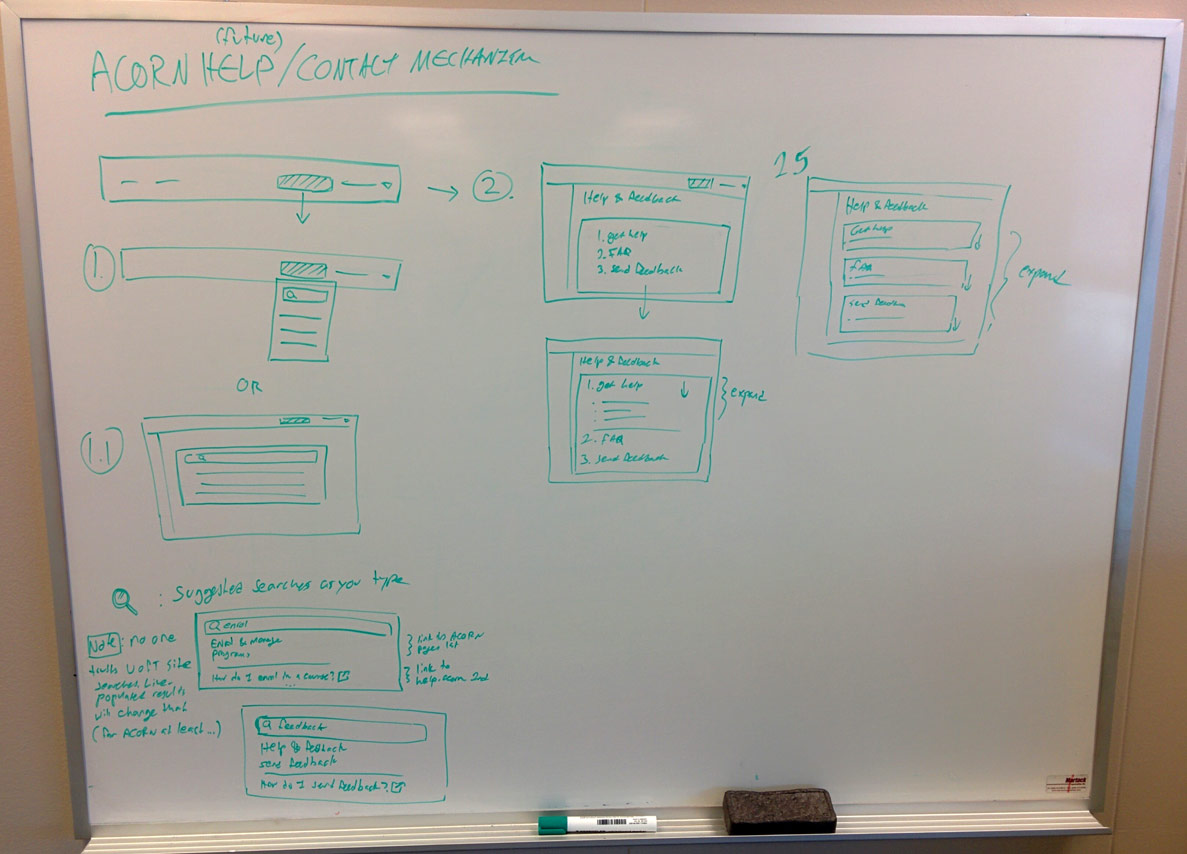 (future)
ACORN HELP/CONTACT MECHANIZM
1.
OR
1.1
2.
Help & Feedback
1. get help
2. FAQ
3. send Feedback
Help & Feedback
1. get help
2. FAQ
3. send Feedback
expand
Help & Feedback
Get help
FAQ
send Feedback
expand
: Suggested searches as you type
Note: no one
trusts UofT site
searches. Live-
populated results
will change that
(for ACORN at least...)
enrol
Enrol & Manage
programs
How do I enrol in a course?
...
link to ACORN
pages 1st
link to
help.acorn 2nd
Feedback
Help & Feedback
send Feedback
How do I send Feedback?
Martack